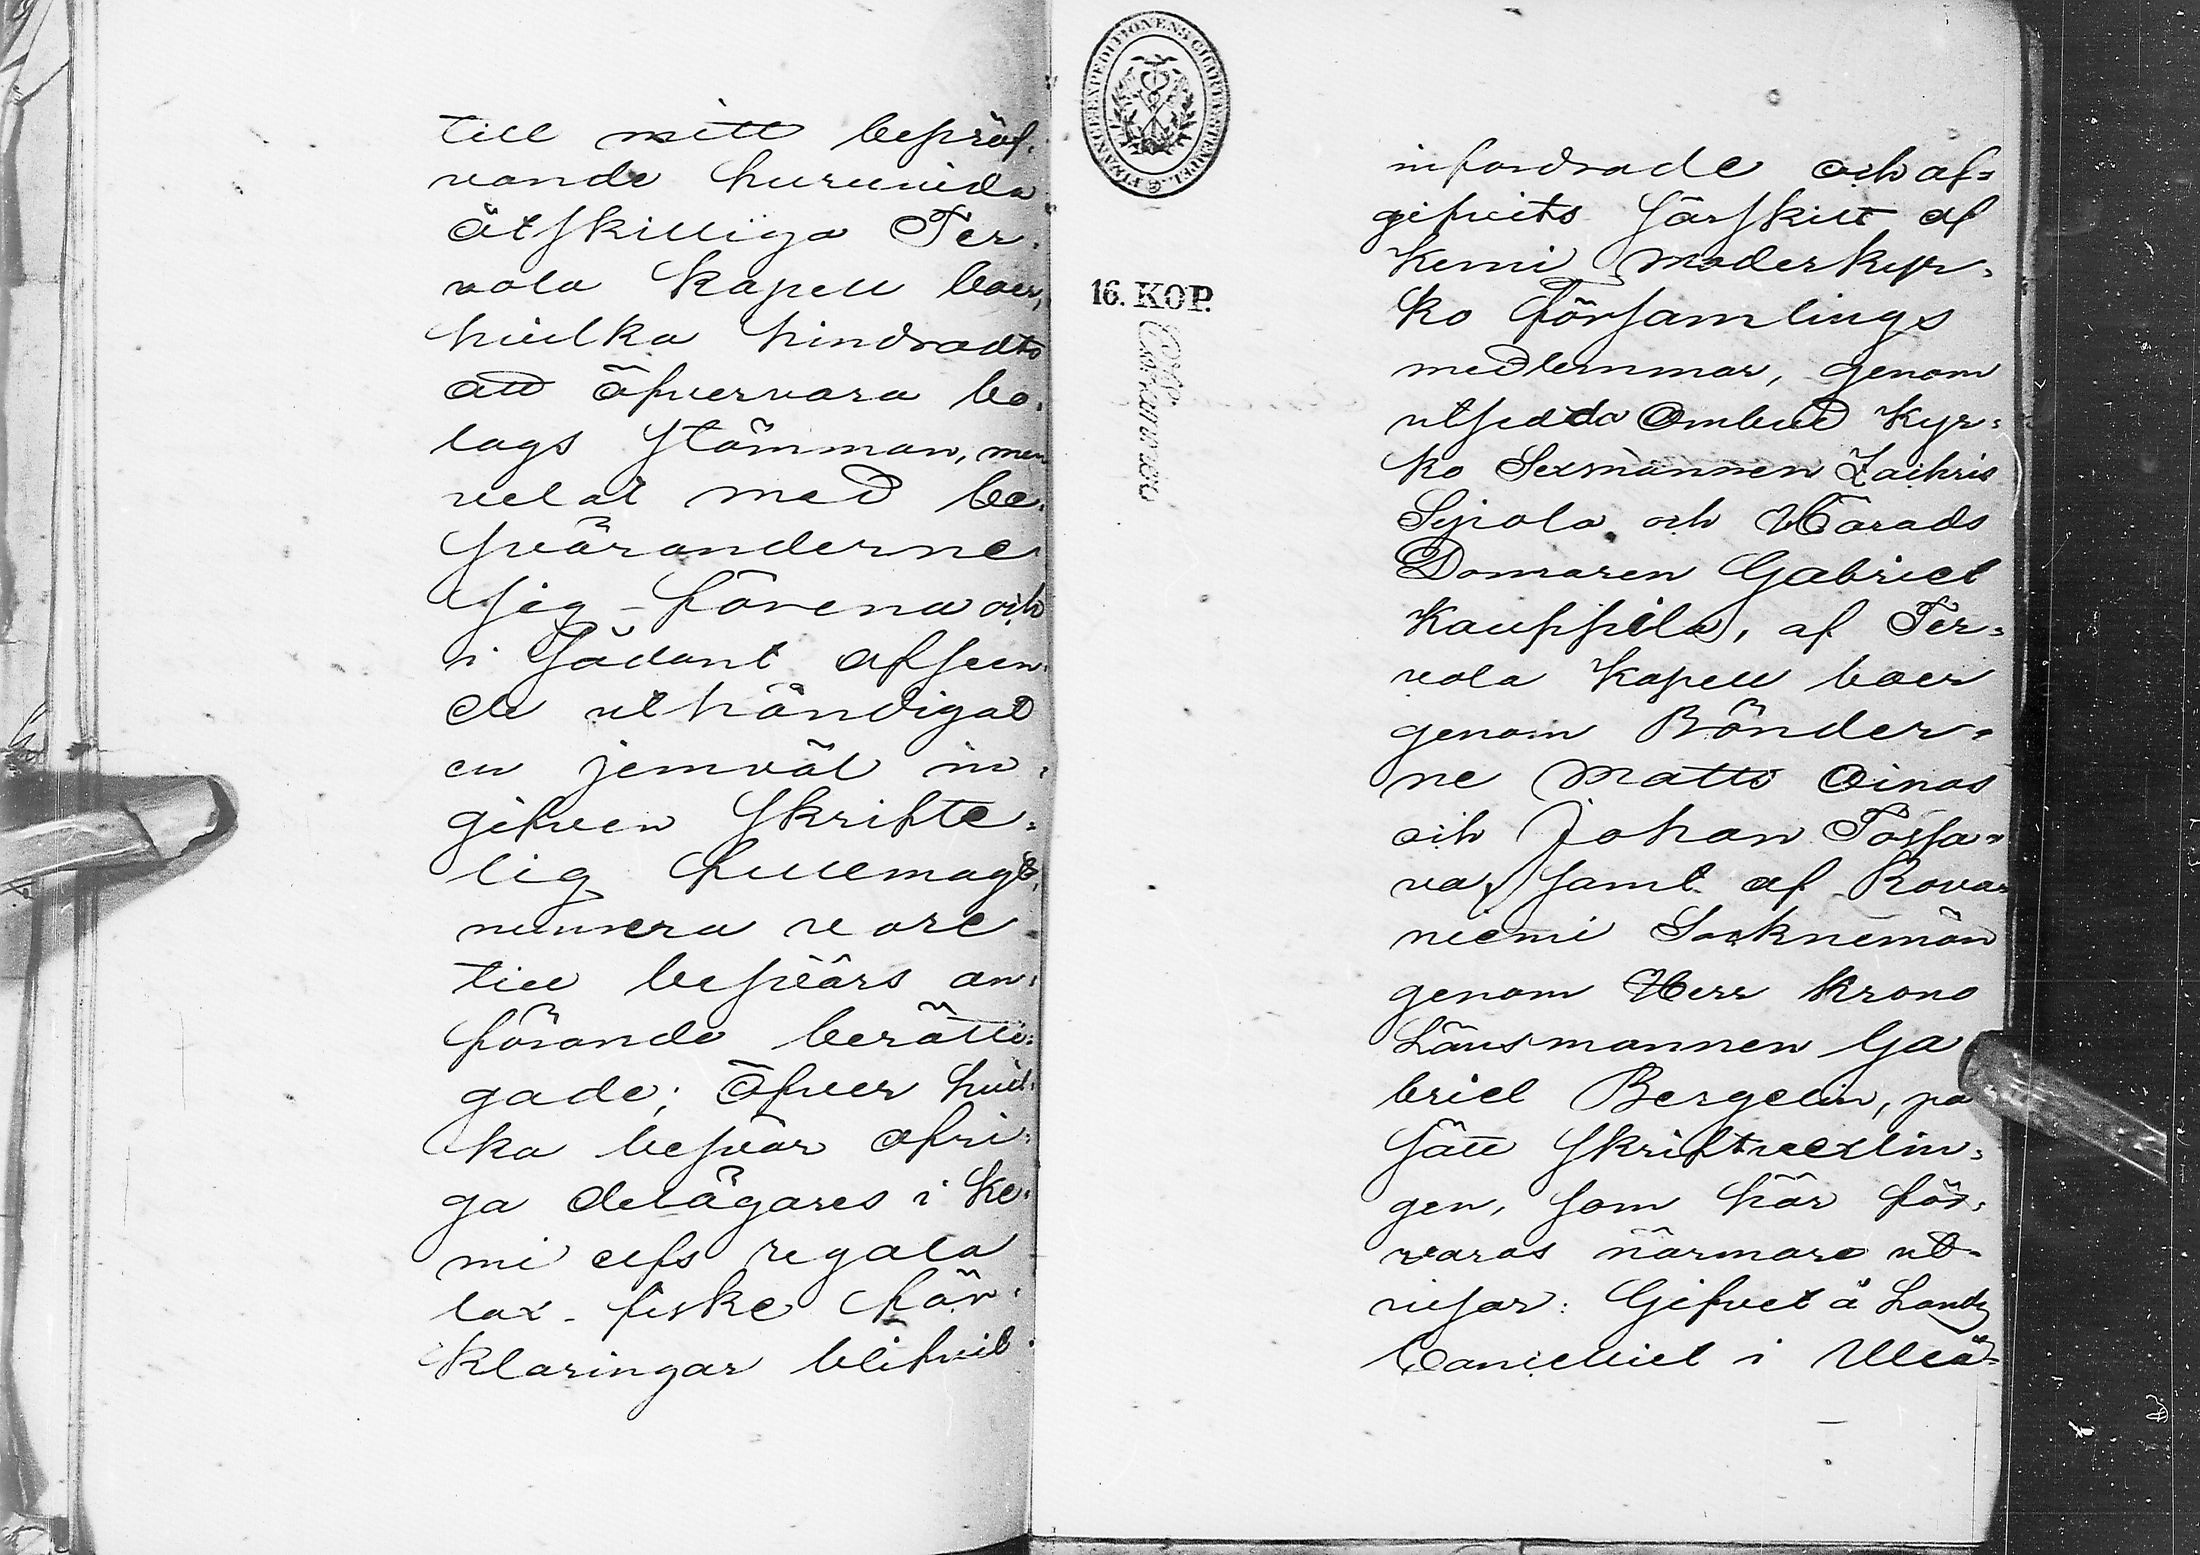 till mitt bepröf-
vande huruvida
åtskilliga Ter-
vola Kapell boer,
hvilka hindradts
att öfvervara bo-
lags stämman, men
velat med be-
sväranderne
sig förena och
i sådant afseen-
de uthändigat
en jemväl in-
gifven skrifte-
lig fullmagt,
numera vore
till besvärs an-
förande berätti-
gade; Öfver hvil-
ka besvär öfri-
ga delägares i Ke-
mi elfs regala
lax-fiske för-
klaringar blifvit
FINANCE EXPEDITIONENS CHARTÆ STEMPEL
16. KOP.
infordrade och af-
gifvits särskilt af
Kemi Moderkyr-
ko Församlings
medlemmar, genom
utsedda Ombud Kyr-
ko Sexmannen Zachris
Sipola och Härads
Domaren Gabriel
Kauppila, af Ter-
vola Kapell boer
genom Bönder-
ne Matts Oinas
och Johan Tossa-
va, samt af Rova-
niemi Socknemän
genom Herr Krono
Länsmannen Ga
briel Bergelin, på
sätt skriftvexlin-
gen, som här för-
varas närmare ut-
visar: Gifvet å Lands
Cancelliet i Uleå-